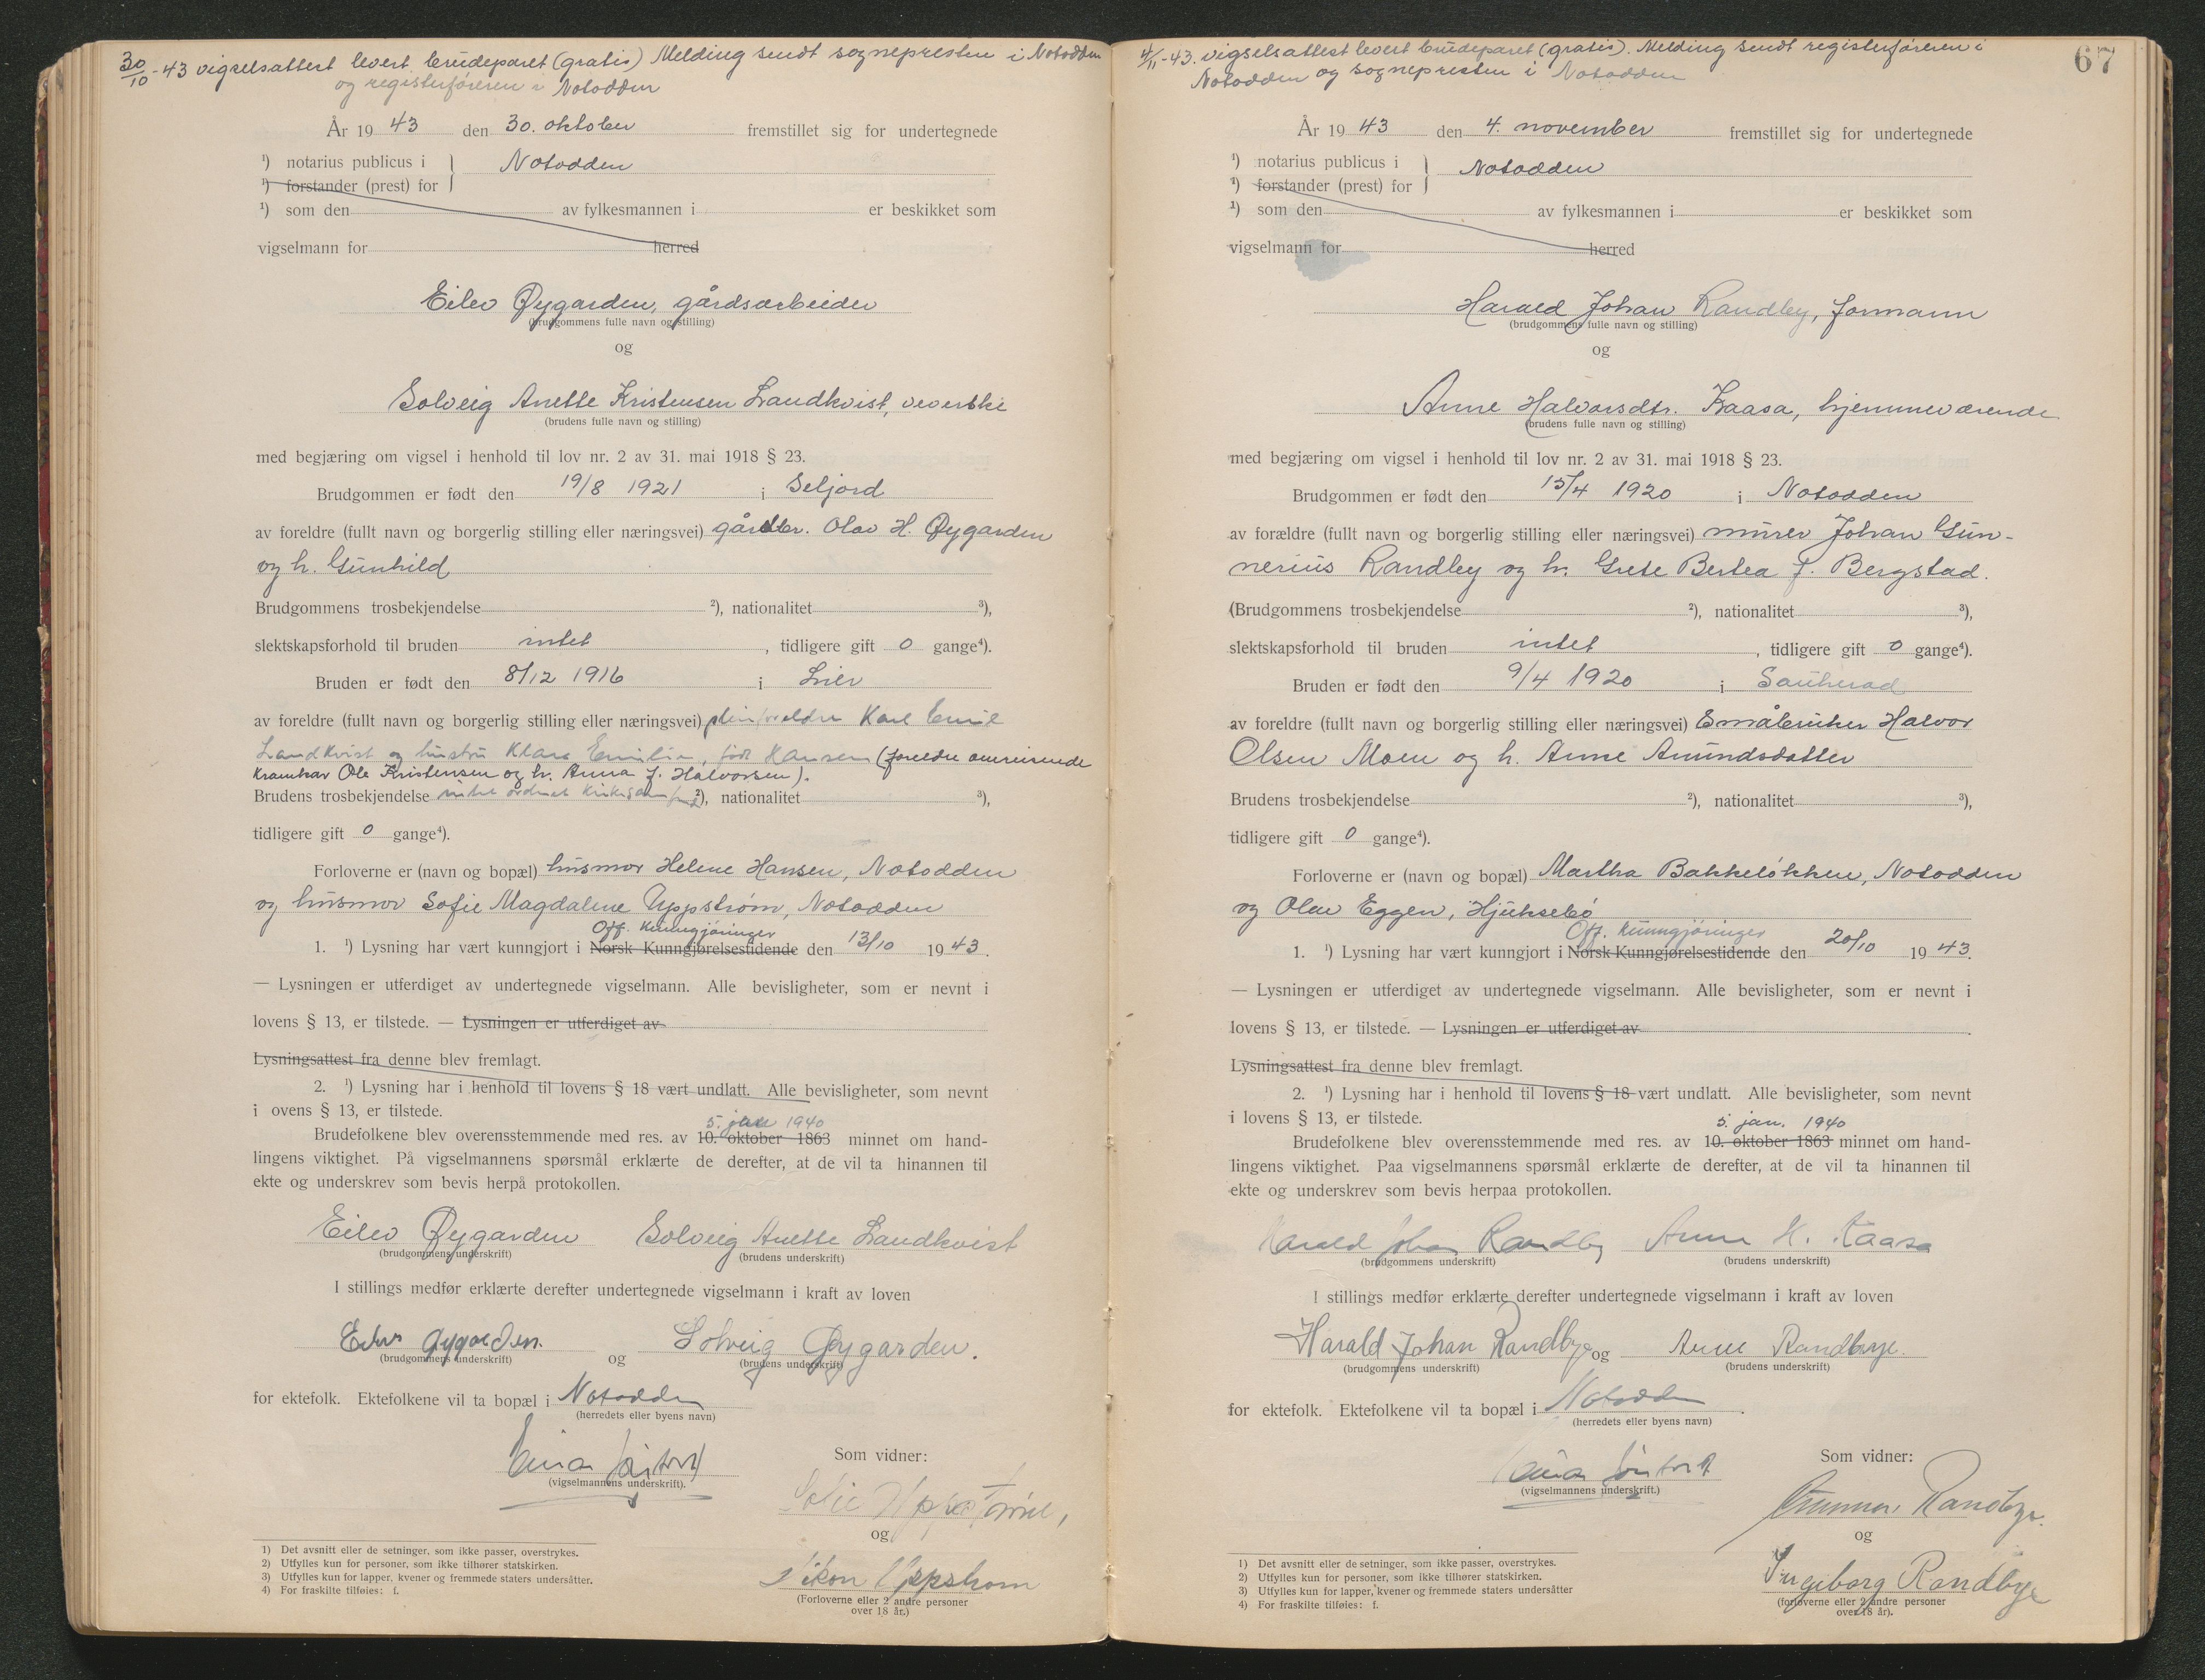 30/10-43 vigselsattest levert brudeparet (gratis) Melding sendt sognepresten i Notodden
og registerføreren i Notodden
År 1943 den 30. oktober fremstillet sig for undertegnede
¹) notarius publicus i } Notodden
¹) forstander (prest) for
¹) som den av fylkesmannen i er beskikket som
vigselmann for herred
Eilev Øygarden, gårdsarbeider
(brudgommens fulle navn og stilling)
og
Solveig Anette Kristensen Landkvist, veverske
(brudens fulle navn og stilling)
med begjæring om vigsel i henhold til lov nr. 2 av 31. mai 1918 § 23.
Brudgommen er født den 19/8 1921 i Seljord
av foreldre (fullt navn og borgerlig stilling eller næringsvei) gårdbr. Olav H. Øygarden
og h. Gunhild
Brudgommens trosbekjendelse ²), nationalitet ³),
slektskapsforhold til bruden intet, tidligere gift 0 gange⁴).
Bruden er født den 8/12 1916 i Lier
av foreldre (fullt navn og borgerlig stilling eller næringsvei) pleieforeldre Karl Emil
Landkvist og hustru Klara Emilie, født Hansen (foreldre omreisende
kramkar Ole Kristensen og h. Anna f. Halvorsen).
Brudens trosbekjendelse intet ordnet kirkesamfund ²), nationalitet ³),
tidligere gift 0 gange⁴).
Forloverne er (navn og bopæl) husmor Helene Hansen, Notodden
og husmor Sofie Magdalene Uppstrøm, Notodden
Off. Kunngjøringer
1. ¹) Lysning har vært kunngjort i Norsk Kunngjørelsestidende den 13/10 1943.
— Lysningen er utferdiget av undertegnede vigselmann. Alle bevisligheter, som er nevnt i
lovens § 13, er tilstede. — Lysningen er utferdiget av
Lysningsattest fra denne blev fremlagt.
2. ¹) Lysning har i henhold til lovens § 18 vært undlatt. Alle bevisligheter, som nevnt
i ovens § 13, er tilstede.
5. jan 1940
Brudefolkene blev overensstemmende med res. av 10. oktober 1863 minnet om hand-
lingens viktighet. På vigselmannens spørsmål erklærte de derefter, at de vil ta hinannen til
ekte og underskrev som bevis herpå protokollen.
Eilev Øygarden Solveig Anette Landkvist
(brudgommens underskrift) (brudens underskrift)
I stillings medfør erklærte derefter undertegnede vigselmann i kraft av loven
Eilev Øygarden. og Solveig Øygarden.
(brudgommens underskrift) (brudens underskrift)
for ektefolk. Ektefolkene vil ta bopæl i Notodden
(herredets eller byens navn)
(vigselmannens underskrift).
Som vidner:
Sofie Uppstrøm,
og
Håkon Uppstrøm
(Forloverne eller 2 andre personer
over 18 år.)
1) Det avsnitt eller de setninger, som ikke passer, overstrykes.
2) Utfylles kun for personer, som ikke tilhører statskirken.
3) Utfylles kun for lapper, kvener og fremmede staters undersåtter.
4) For fraskilte tilføies: f.
67
4/11-43. vigselsattest levert brudeparet (gratis). Melding sendt registerføreren i
Notodden og sognepresten i Notodden
År 1943 den 4. november fremstillet sig for undertegnede
¹) notarius publicus i } Notodden
¹) forstander (prest) for
¹) som den av fylkesmannen i er beskikket som
vigselmann for herred
Harald Johan Randby, formann
(brudgommens fulle navn og stilling)
og
Anne Halvorsdtr. Kaasa, hjemmeværende
(brudens fulle navn og stilling)
med begjæring om vigsel i henhold til lov nr. 2 av 31. mai 1918 § 23.
Brudgommen er født den 15/4 1920 i Notodden
av forældre (fullt navn og borgerlig stilling eller næringsvei) murer Johan Gun-
nerius Randby og h. Grete Bertea f. Bergstad.
(Brudgommens trosbekjendelse ²), nationalitet ³),
slektskapsforhold til bruden intet, tidligere gift 0 gange⁴).
Bruden er født den 9/4 1920 i Sauherad
av foreldre (fullt navn og borgerlig stilling eller næringsvei) Småbruker Halvor
Olsen Moen og h. Anne Amundsdatter
Brudens trosbekjendelse ²), nationalitet ³),
tidligere gift 0 gange⁴).
Forloverne er (navn og bopæl) Martha Bakkeløkken, Notodden
og Olav Eggen, Hjuksebø
Off. Kunngjøringer
1. ¹) Lysning har vært kunngjort i Norsk Kunngjørelsestidende den 20/10 1943.
— Lysningen er utferdiget av undertegnede vigselmann. Alle bevisligheter, som er nevnt i
lovens § 13, er tilstede. — Lysningen er utferdiget av
Lysningsattest fra denne blev fremlagt.
2. ¹) Lysning har i henhold til lovens § 18 vært undlatt. Alle bevisligheter, som nevnt
i lovens § 13, er tilstede.
5. jan. 1940
Brudefolkene blev overensstemmende med res. av 10. oktober 1863 minnet om hand-
lingens viktighet. Paa vigselmannens spørsmål erklærte de derefter, at de vil ta hinannen til
ekte og underskrev som bevis herpaa protokollen.
Harald Johan Randby Anne H. Kaasa
(brudgommens underskrift) (brudens underskrift)
I stillings medfør erklærte derefter undertegnede vigselmann i kraft av loven
Harald Johan Randbye og Anne Randbye.
(brudgommens underskrift) (brudens underskrift)
for ektefolk. Ektefolkene vil ta bopæl i Notodden
(herredets eller byens navn)
(vigselmannens underskrift.)
Som vidner:
Gunnar Randbye.
og
Ingeborg Randbye
(forloverne eller 2 andre personer
over 18 år).
1) Det avsnitt eller de setninger, som ikke passer, overstrykes.
2) Utfylles kun for personer, som ikke tilhører statskirken.
3) Utfylles kun for lapper, kvener og fremmede staters undersåtter
4) For fraskilte tilføies: f.